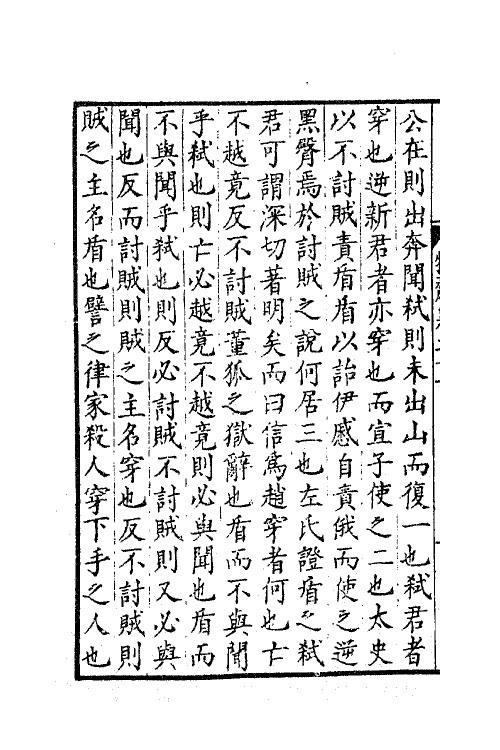 公在則出奔聞弑則未出山而復一也弑君者
穿也逆新君者亦穿也而宣子使之二也太史
以不討賊責盾盾以詒伊慼自責俄而使之逆
黑臀焉於討賊之說何居三也左氏證盾之弑
君可謂深切著明矣而曰信爲趙穿者何也亡
不越竟反不討賊董狐之獄辭也盾而不與聞
乎弑也則亡必越竟不越竟則必與聞也盾而
不與聞乎弑也則反必討賊不討賊則又必與
聞也反而討賊則賊之主名穿也反不討賊則
賊之主名盾也譬之律家殺人穿下手之人也